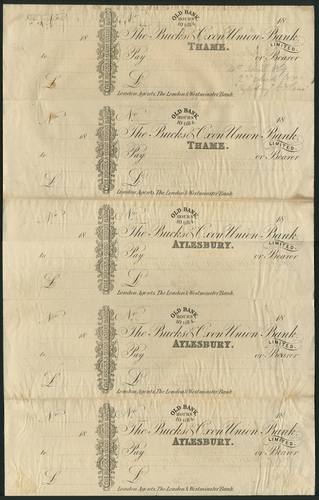 OLD BANK
HOURS
10 till 4
No 18
18 The Bucks & Oxon Union Bank,
LIMITED.
THAME.
to Pay or Bearer
£ £
London Agents, The London & Westminster Bank.
OLD BANK
HOURS
10 till 4
No 18
18 The Bucks & Oxon Union Bank,
LIMITED.
THAME.
to Pay or Bearer
£ £
London Agents, The London & Westminster Bank.
OLD BANK
HOURS
10 till 4
No No 18
18 The Bucks & Oxon Union Bank,
LIMITED.
AYLESBURY.
to Pay or Bearer
£ £
London Agents, The London & Westminster Bank.
OLD BANK
HOURS
10 till 4
No No 18
18 The Bucks & Oxon Union Bank,
LIMITED.
AYLESBURY.
to Pay or Bearer
£ £
London Agents, The London & Westminster Bank.
OLD BANK
HOURS
10 till 4
No No 18
18 The Bucks & Oxon Union Bank,
LIMITED.
AYLESBURY.
to Pay or Bearer
£ £
London Agents, The London & Westminster Bank.